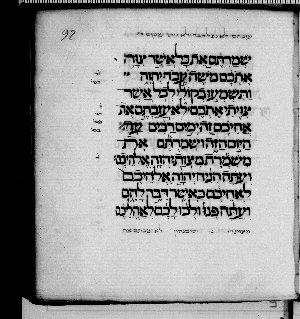 92
שמרתם את כל אשר צוה
אתכם משה עבד יהוה
ותשמעו בקולי לכל אשר
צויתי אתכם לא עזבתם את
אחיכם זה ימים רבים עד
היום הזה ושמרתם את
משמרת מצות יהוה אלהיכם
ועתה הניח יהוה אלהיכם
לאחיכם כאשר דבר להם
ועתה פנו ולכו לכם לאהליכם